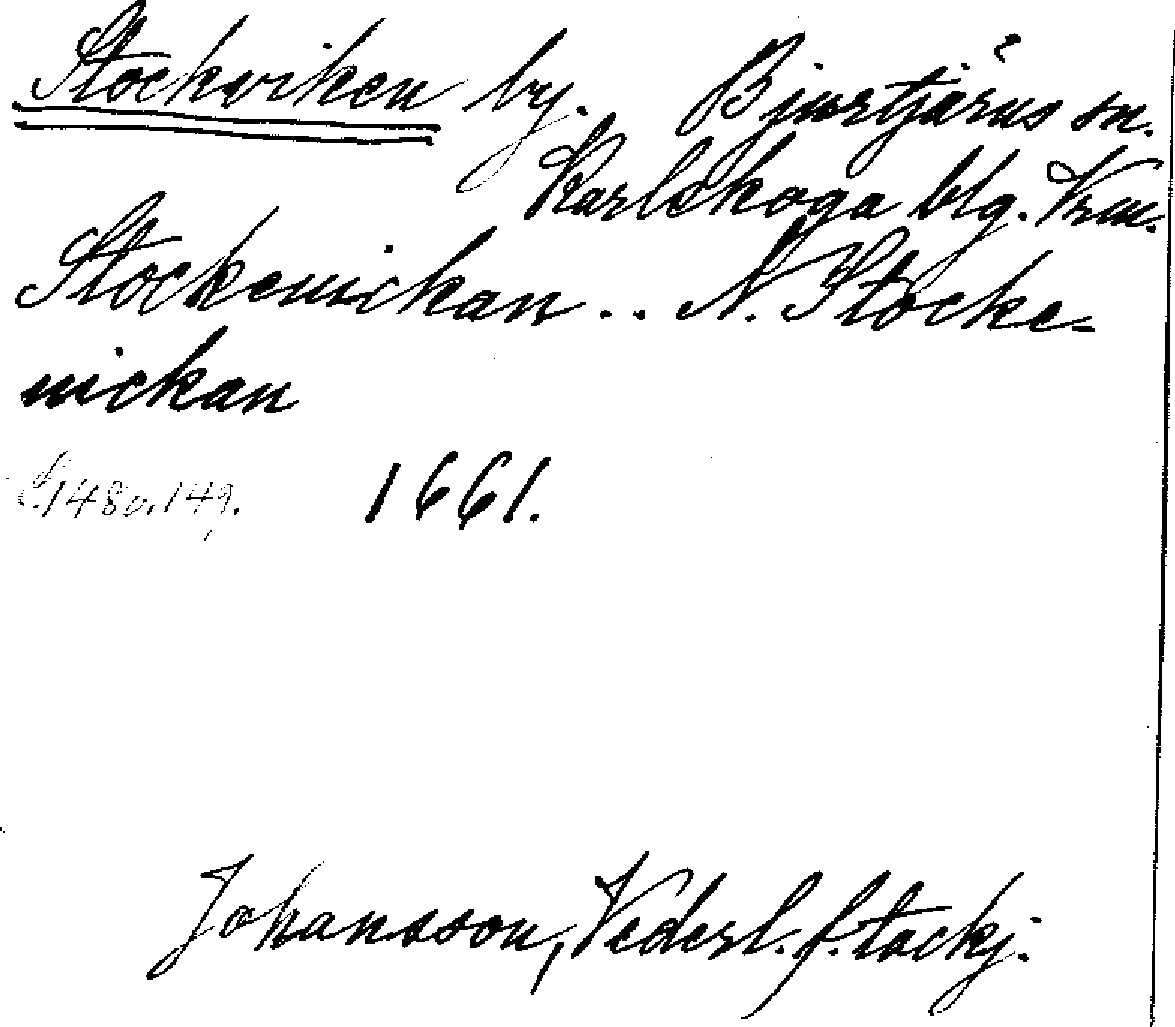 Stockviken by. Bjurtjärns sn.
Karlskoga blg. Vrm.
Stockeuickan .. N. Stocke-
uickan
S. 148 o. 149. 1661.
Johansson, Vederl. f. tackj.